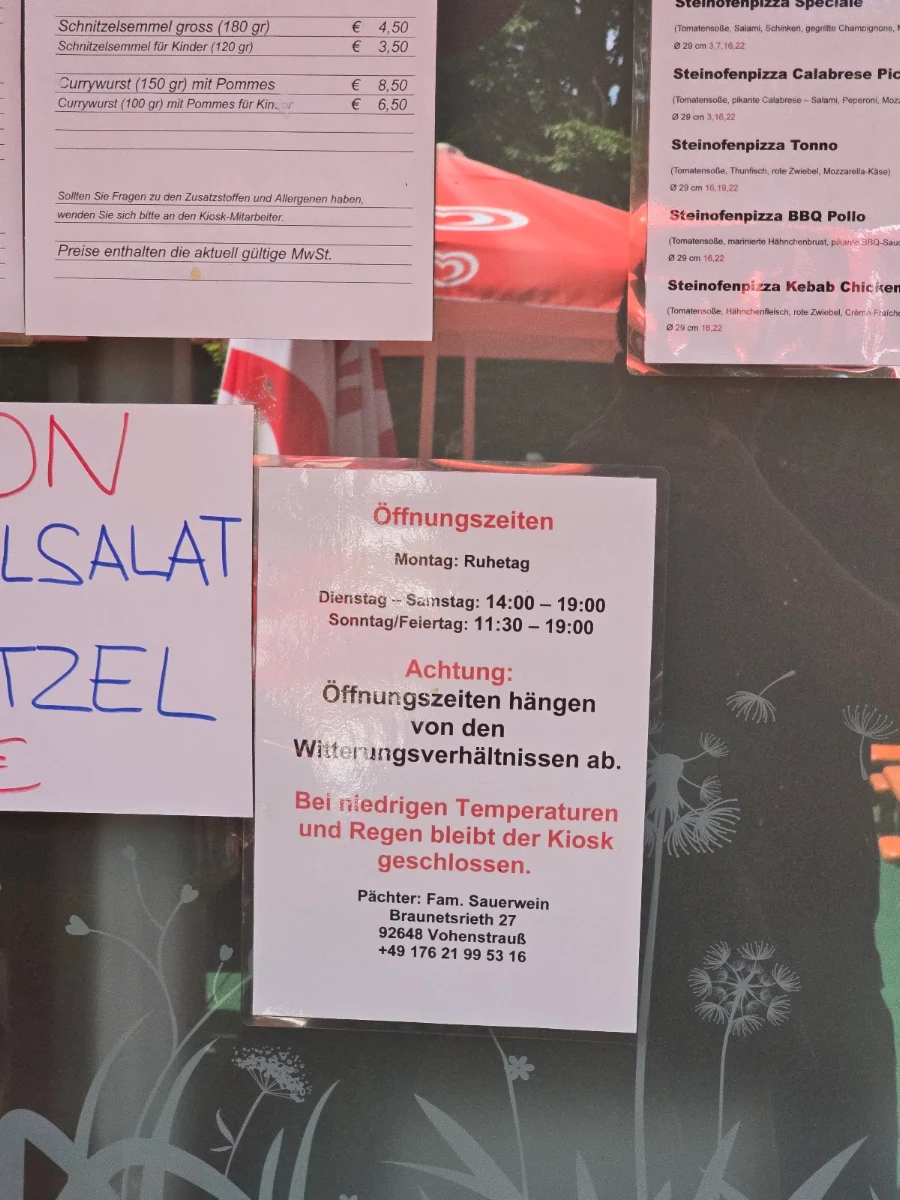 Schnitzelsemmel gross (180 gr) € 4,50
Schnitzelsemmel für Kinder (120 gr) € 3,50
Currywurst (150 gr) mit Pommes € 8,50
Currywurst (100 gr) mit Pommes für Kinder € 6,50
Sollten Sie Fragen zu den Zusatzstoffen und Allergenen haben,
wenden Sie sich bitte an den Kiosk-Mitarbeiter.
Preise enthalten die aktuell gültige MwSt.
Steinofenpizza Speciale
(Tomatensoße, Salami, Schinken, gegrillte Champignons,
Ø 29 cm 3,7,16,22
Steinofenpizza Calabrese Pic
(Tomatensoße, pikante Calabrese – Salami, Peperoni, Mozz
Ø 29 cm 3,16,22
Steinofenpizza Tonno
(Tomatensoße, Thunfisch, rote Zwiebel, Mozzarella-Käse)
Ø 29 cm 16,19,22
Steinofenpizza BBQ Pollo
(Tomatensoße, marinierte Hähnchenbrust, pikante BBQ-Sauc
Ø 29 cm 16,22
Steinofenpizza Kebab Chicken
(Tomatensoße, Hähnchenfleisch, rote Zwiebel, Crème-Fraîche
Ø 29 cm 16,22
ON
LSALAT
TZEL
€
Öffnungszeiten
Montag: Ruhetag
Dienstag – Samstag: 14:00 – 19:00
Sonntag/Feiertag: 11:30 – 19:00
Achtung:
Öffnungszeiten hängen
von den
Witterungsverhältnissen ab.
Bei niedrigen Temperaturen
und Regen bleibt der Kiosk
geschlossen.
Pächter: Fam. Sauerwein
Braunetsrieth 27
92648 Vohenstrauß
+49 176 21 99 53 16